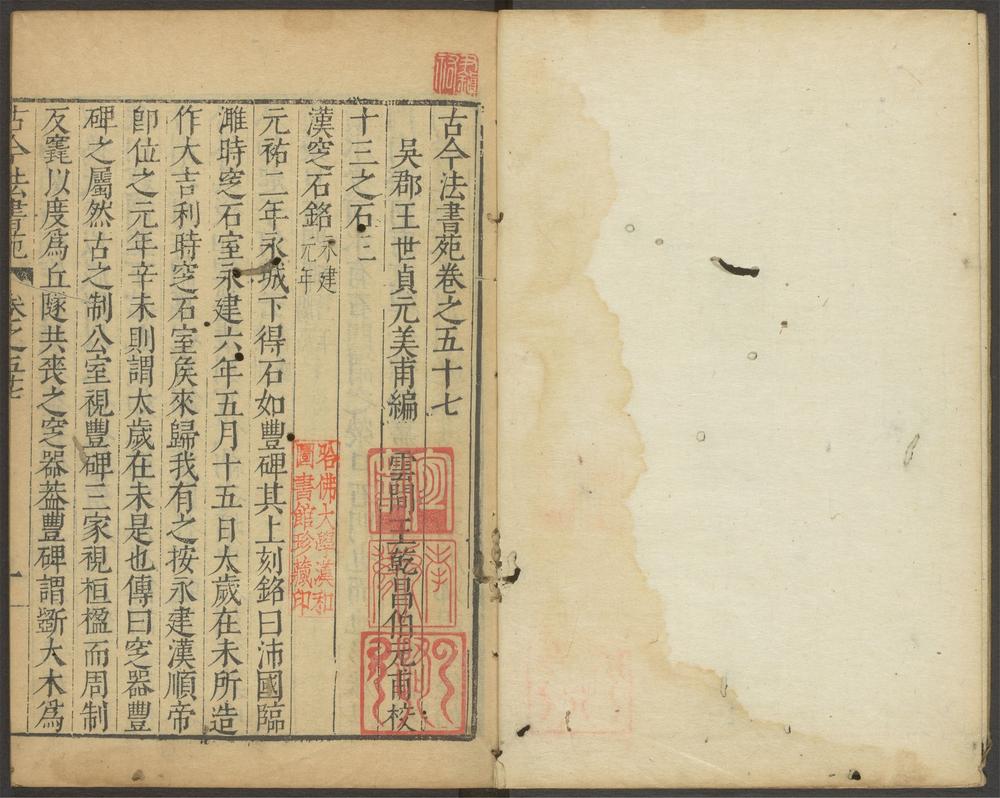 古今法書苑卷之五十七
吳郡王世貞元美甫編　雲間王乾昌伯元甫校
十三之石三
漢窆石銘永建元年
元祐二年永城下得石如豐碑其上刻銘曰沛國臨
濉時窆石室永建六年五月十五日太歲在未所造
作大吉利時窆石室矦來歸我有之按永建漢順帝
卽位之元年辛未則謂太歲在未是也傳曰窆器豐
碑之屬然古之制公室視豐碑三家視桓楹而周制
及窆以度爲丘隧共喪之窆器葢豐碑謂斵大木爲
古今法書苑　卷之五十七　一
哈佛大學漢和
圖書館珍藏印